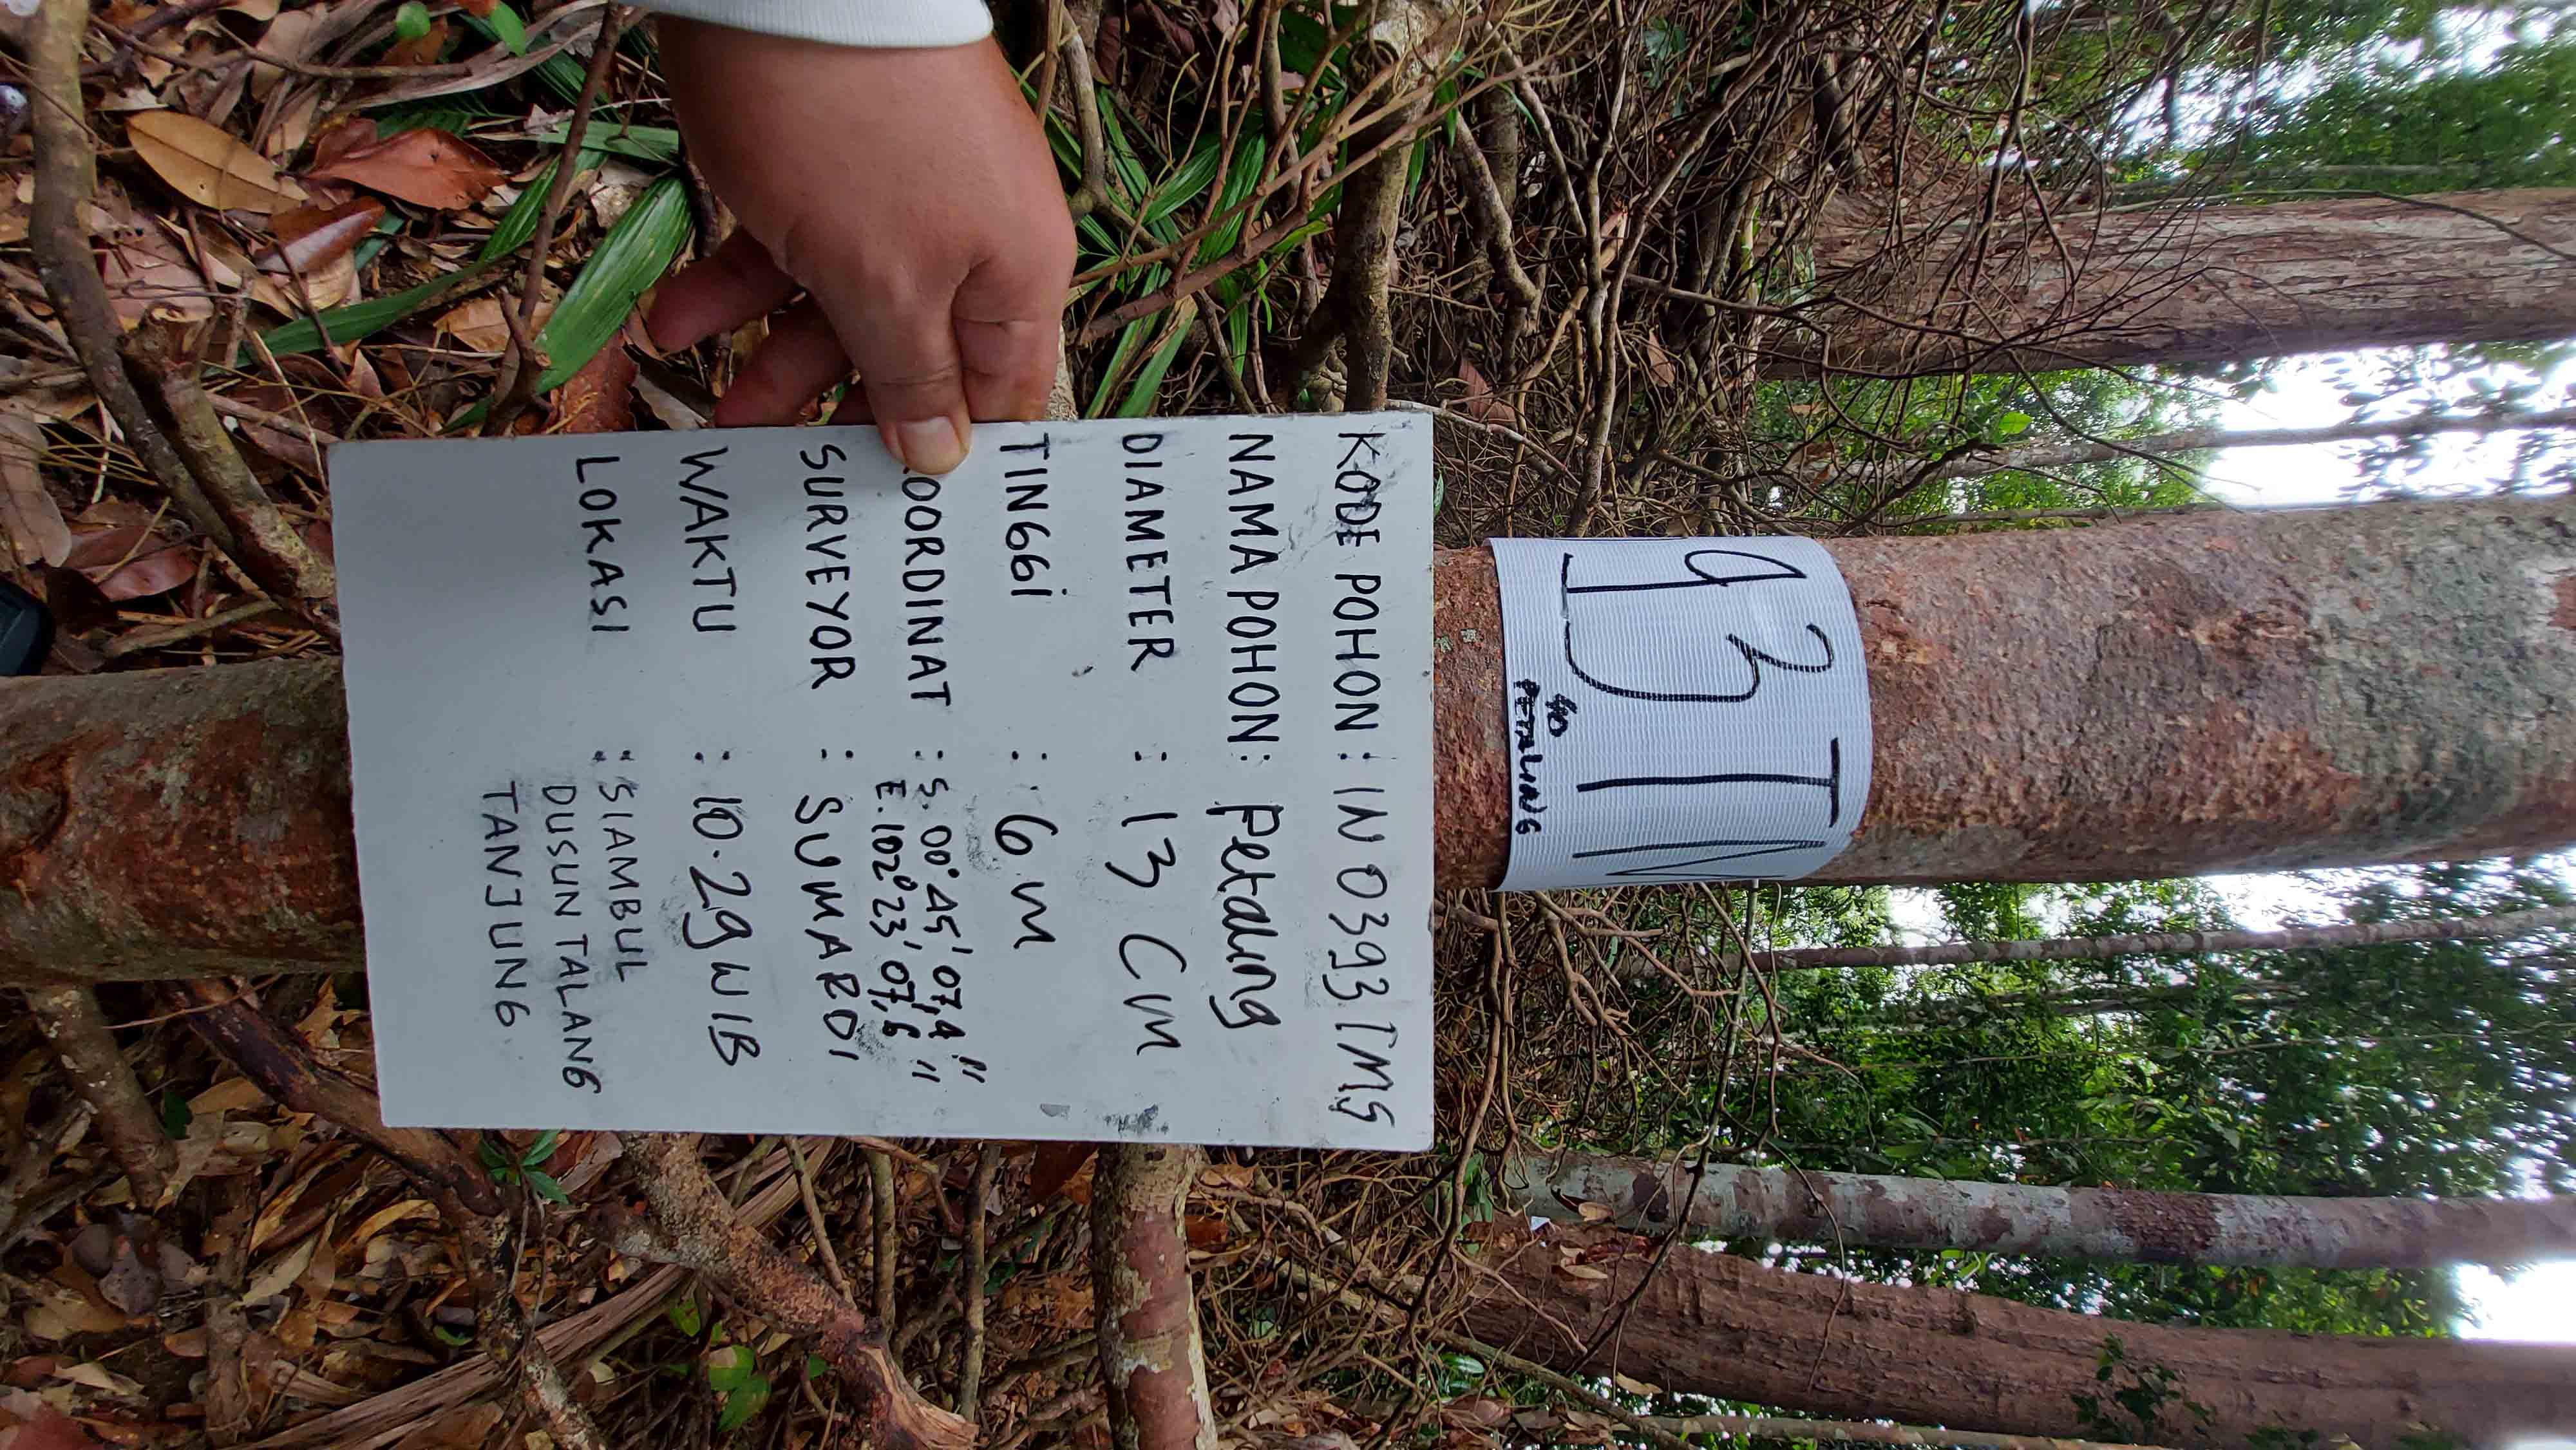 93 TM
40
PETALING
KODE POHON : IN 0393 TMS
NAMA POHON : Petaling
DIAMETER : 13 CM
TINGGI : 6 m
OORDINAT : S. 00° 45' 07,4"
E. 102° 23' 07,6"
SURVEYOR : SUMARDI
WAKTU : 10.29 WIB
LOKASI : SIAMBUL
DUSUN TALANG
TANJUNG